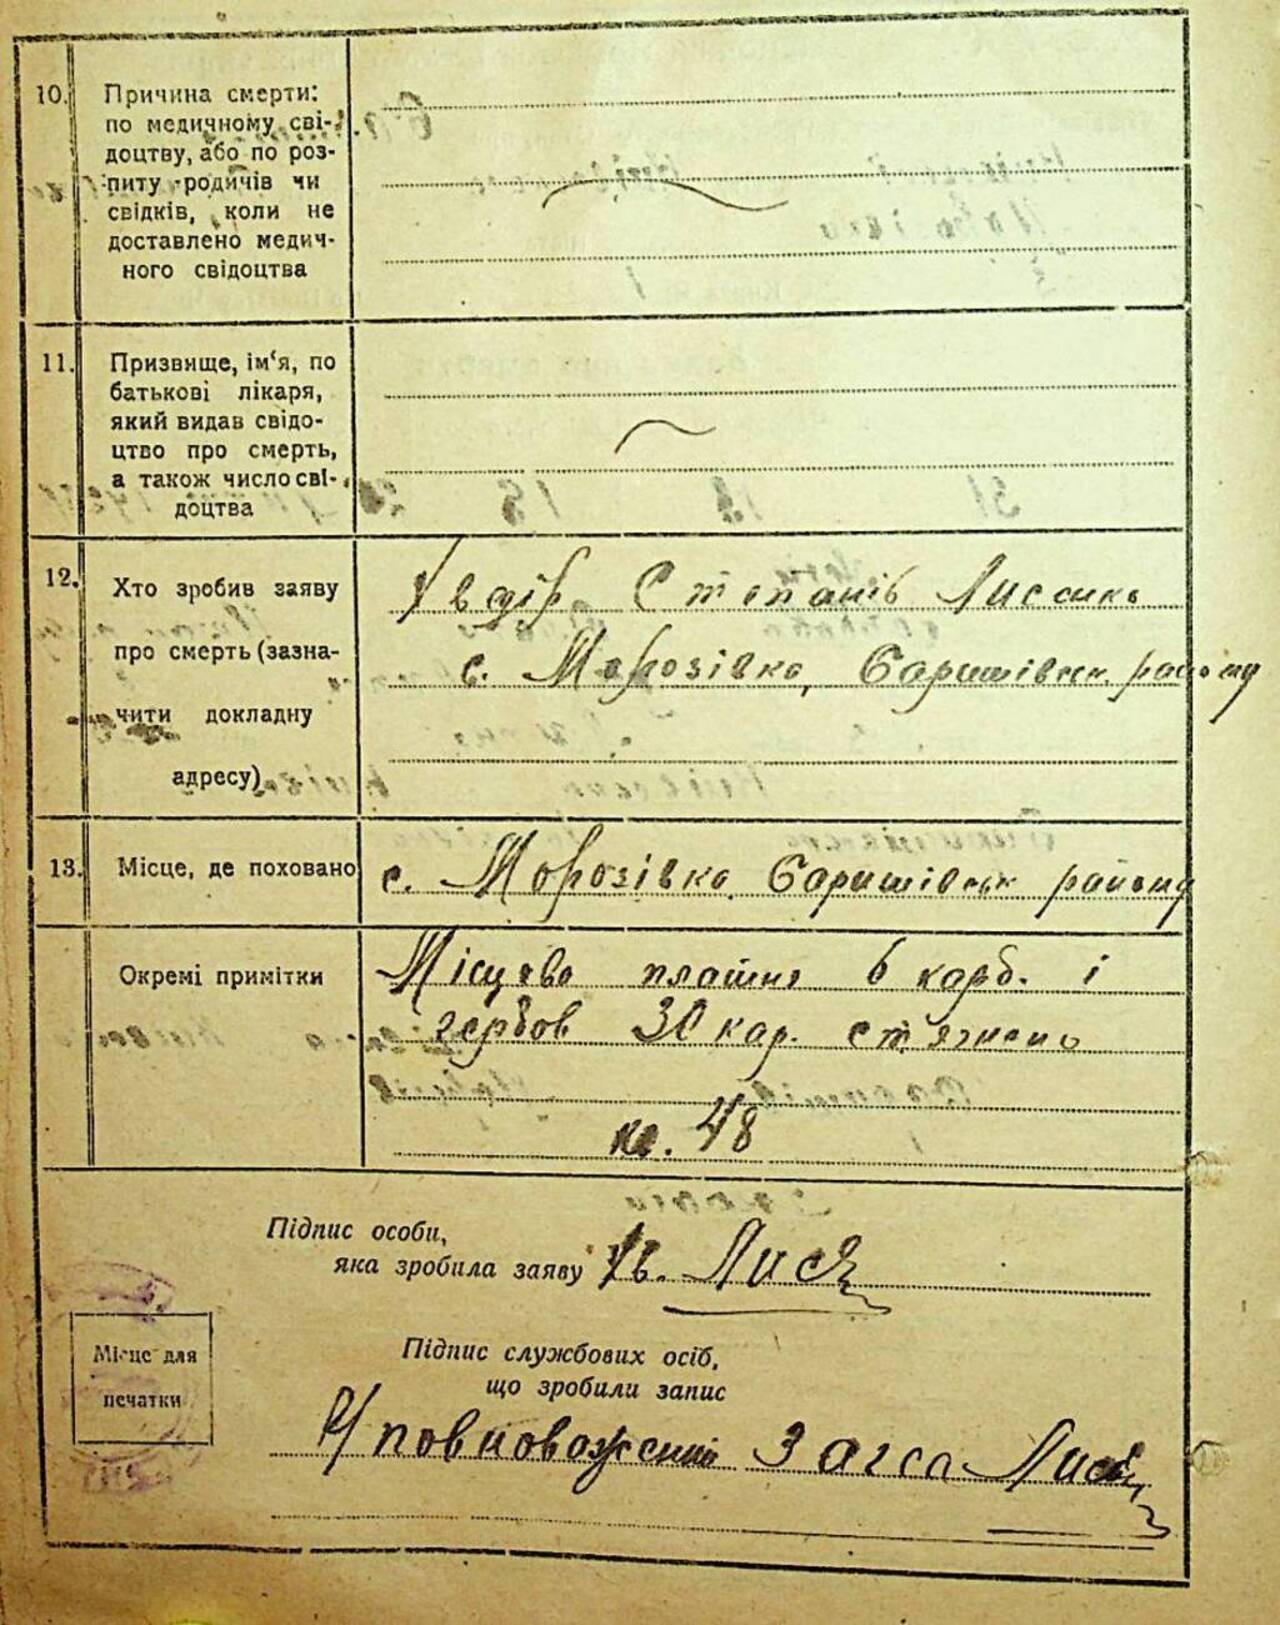 10. Причина смерти:
по медичному сві-
доцтву, або по роз-
питу родичів чи
свідків, коли не
доставлено медич-
ного свідоцтва
11. Призвище, ім‘я, по
батькові лікаря,
який видав свідо-
цтво про смерть,
а також число сві-
доцтва
12. Хто зробив заяву
про смерть (зазна-
чити докладну
адресу)
Степанів
с. Морозівка, Баришівськ. району
13. Місце, де поховано
с. Морозівка Баришівськ району
Окремі примітки
Місцеве платне 6 карб. і
гербов 30 кар. стягнено
кв. 48
Підпис особи,
яка зробила заяву
Підпис службових осіб,
що зробили запис
Місце для
печатки
У/повноважений Загса